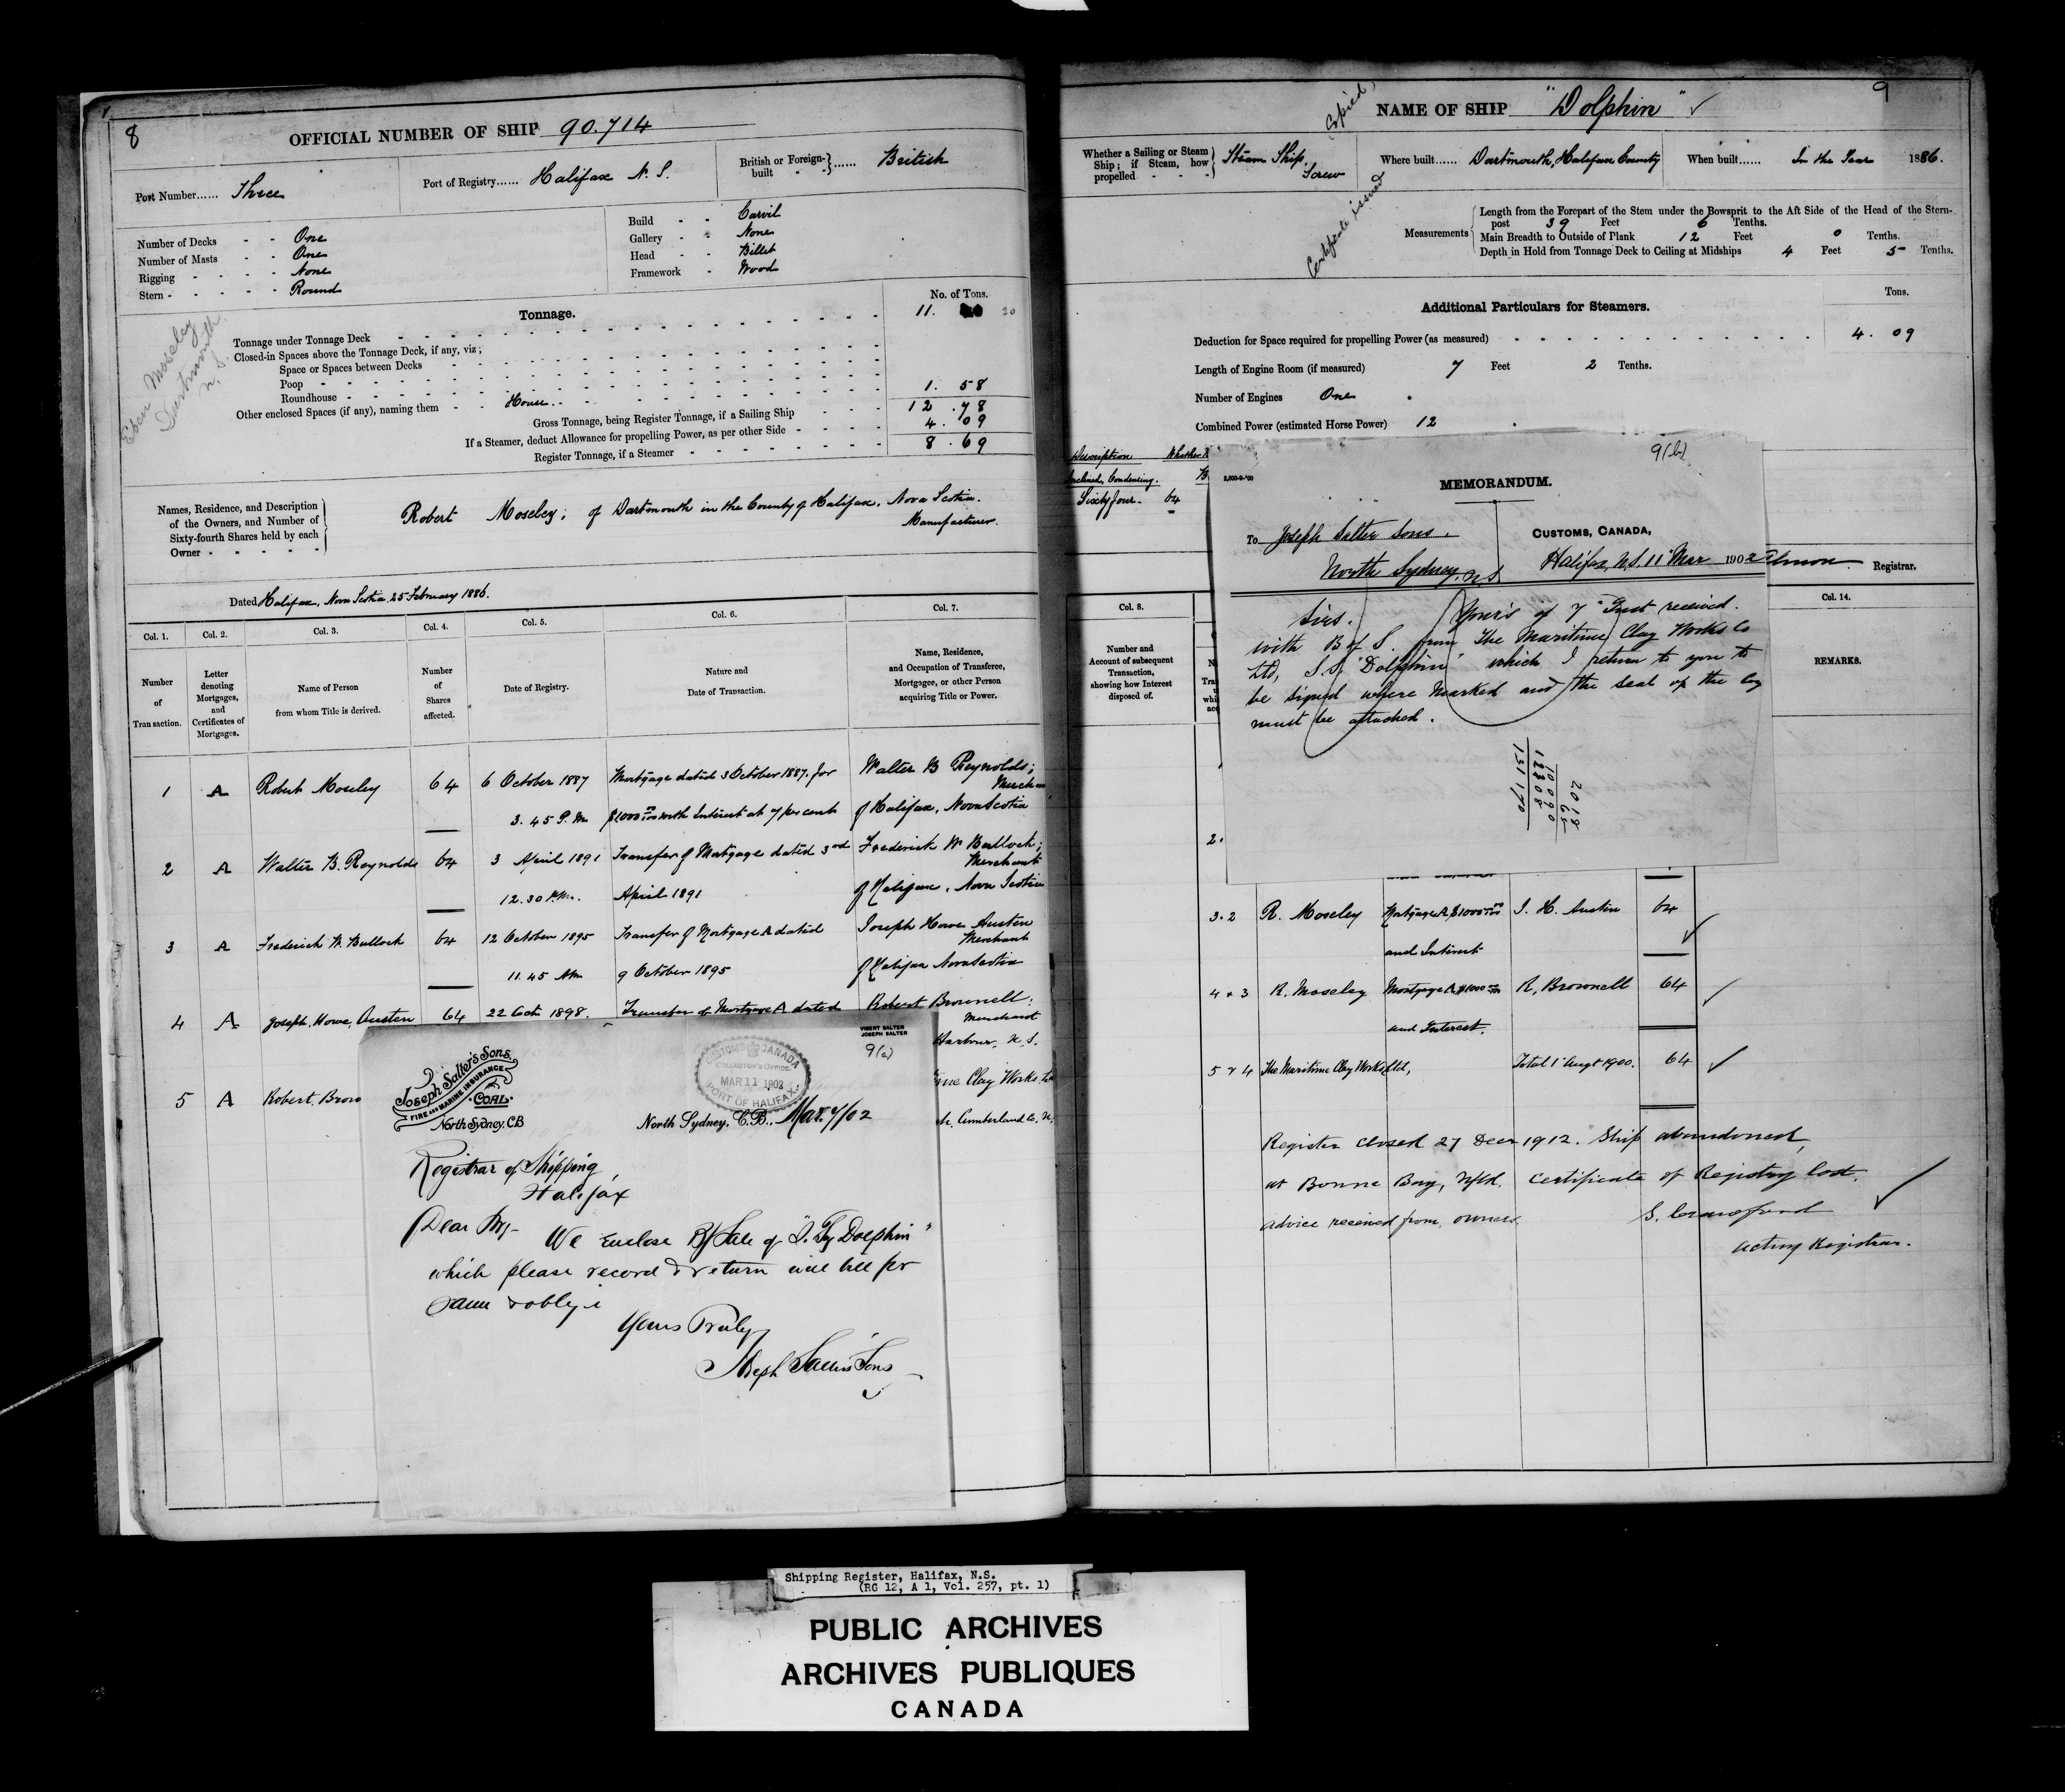 8
OFFICIAL NUMBER OF SHIP 90.714
Port Number...... Three
Port of Registry...... Halifax N. S.
British or Foreign-built - - }...... British
Number of Decks - - One
Number of Masts - - One
Rigging - - - - None
Stern - - - - - Round
Build - - Carvil
Gallery - - None
Head - - Billet
Framework - Wood
Eben Moseley
Dartmouth
N. S.
Tonnage.
No. of Tons.
Tonnage under Tonnage Deck 11. 20
Closed-in Spaces above the Tonnage Deck, if any, viz;
Space or Spaces between Decks
Poop
Roundhouse
Other enclosed Spaces (if any), naming them - - House 1. 58
Gross Tonnage, being Register Tonnage, if a Sailing Ship 12 .78
If a Steamer, deduct Allowance for propelling Power, as per other Side 4. 09
Register Tonnage, if a Steamer 8. 69
Names, Residence, and Description
of the Owners, and Number of
Sixty-fourth Shares held by each
Owner
Robert Moseley; of Dartmouth in the County of Halifax, Nova Scotia.
Manufacturer.
Dated Halifax, Nova Scotia 25 February 1886.
Col. 1. Col. 2. Col. 3. Col. 4. Col. 5. Col. 6. Col. 7.
Number of Transaction.
Letter denoting Mortgages, and Certificates of Mortgages.
Name of Person from whom Title is derived.
Number of Shares affected.
Date of Registry.
Nature and Date of Transaction.
Name, Residence, and Occupation of Transferee, Mortgagee, or other Person acquiring Title or Power.
1 A Robert Moseley 64 6 October 1887 Mortgage dated 3 October 1887, for Walter B Reynolds;
Merchan
3. 45 P. M $1000 with Interest at 7 per cent of Halifax, Nova Scotia
2 A Walter B. Reynolds 64 3 April 1891 Transfer of Mortgage dated 3rd Frederick W Bullock;
Merchant
12.30 P.M. April 1891 of Halifax, Nova Scotia
3 A Frederick W. Bullock 64 12 October 1895 Transfer of Mortgage A dated Joseph Howe Austen
Merchant
11. 45 AM 9 October 1895 of Halifax Nova Scotia
4 A Joseph, Howe, Austen 64 22 Oct 1898. Transfer of Mortgage A dated Robert Brownell:
Merchant
Harbour, N. S.
5 A Robert, Brow
Clay Works
Cumberland Co, N,
VIBERT SALTER
JOSEPH SALTER
9(a)
Joseph Salter's Sons.
FIRE AND MARINE INSURANCE
COAL
North Sydney, C.B
CUSTOMS CANADA
COLLECTOR'S OFFICE
MAR 11 1902
PORT OF HALIFAX
North Sydney, C.B., Mar. 7/02
Registrar of Shipping,
Halifax
Dear Sir,-
We enclose B/Sale of "S. Tg Dolphin"
which please record & return with bill for
same & oblige
Yours Truly
Joseph Salter's Sons
9
NAME OF SHIP "Dolphin"
Copied,
Certificate issued
Whether a Sailing or Steam Ship; if Steam, how propelled - - - } Steam Ship.
Screw
Where built...... Dartmouth, Halifax County
When built...... In the Year 1886.
Measurements
Length from the Forepart of the Stem under the Bowsprit to the Aft Side of the Head of the Stern-
post 39 Feet 6 Tenths.
Main Breadth to Outside of Plank 12 Feet 0 Tenths.
Depth in Hold from Tonnage Deck to Ceiling at Midships 4 Feet 5 Tenths.
Additional Particulars for Steamers.
Tons.
Deduction for Space required for propelling Power (as measured) 4. 09
Length of Engine Room (if measured) 7 Feet 2 Tenths.
Number of Engines One
Combined Power (estimated Horse Power) 12
Description Whether
Inclined, Condensing.
Sixty four - 64
Registrar.
Col. 8. Col. 14.
Number and Account of subsequent Transaction, showing how Interest disposed of.
REMARKS.
9(b)
2,000-9-'00
MEMORANDUM.
To Joseph Salter Sons.
North Sydney. N.S
CUSTOMS, CANADA,
Halifax, N.S. 11 Mar 1902
Sirs.
Your's of 7 Inst received.
with B of S. from The Maritime Clay Works Co
Ltd, S.S. "Dolphin" which I return to you to
be signed where marked and the seal of the Coy
must be attached.
2.
3.2 R. Moseley Mortgage A, $1000 J. H. Austin 64
and Interest
4 & 3 R. Moseley Mortgage A, $1000 R, Brownell 64
and Interest.
5 & 4 The Maritime Clay Works Ltd, Total 1 Augt 1900. 64
Register closed 27 Decr 1912. Ship abandoned,
at Bonne Bay, Nfld. Certificate of Registry lost.
Advice received from owners.
Acting Registrar.
Shipping Register, Halifax, N.S.
(RG 12, A 1, Vol. 257, pt. 1)
PUBLIC ARCHIVES
ARCHIVES PUBLIQUES
CANADA